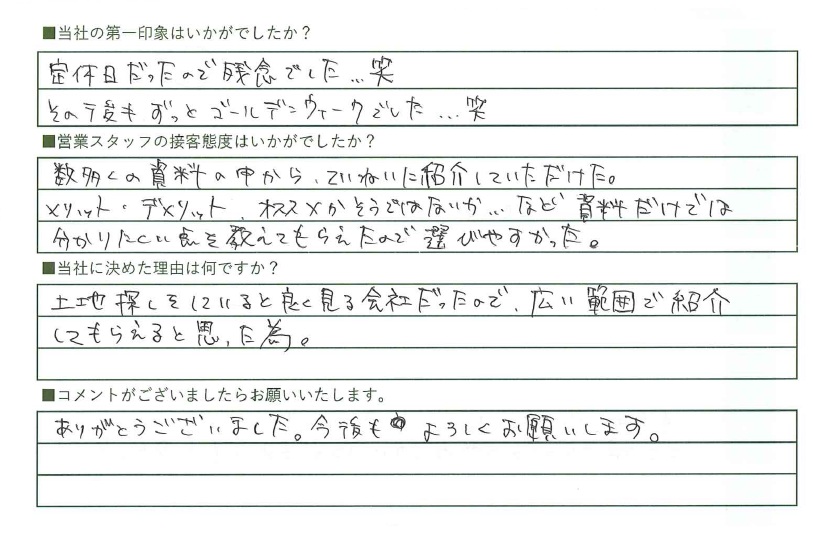 ■当社の第一印象はいかがでしたか？
定休日だったので残念でした…笑
その後もずっとゴールデンウィークでした…笑
■営業スタッフの接客態度はいかがでしたか？
数多くの資料の中から、ていねいに紹介していただけた。
メリット・デメリット、オススメかそうではないか…など資料だけでは
分かりにくい点を教えてもらえたので選びやすかった。
■当社に決めた理由は何ですか？
土地探しをしていると良く見る会社だったので、広い範囲で紹介
してもらえると思った為。
■コメントがございましたらお願いいたします。
ありがとうございました。今後もよろしくお願いします。